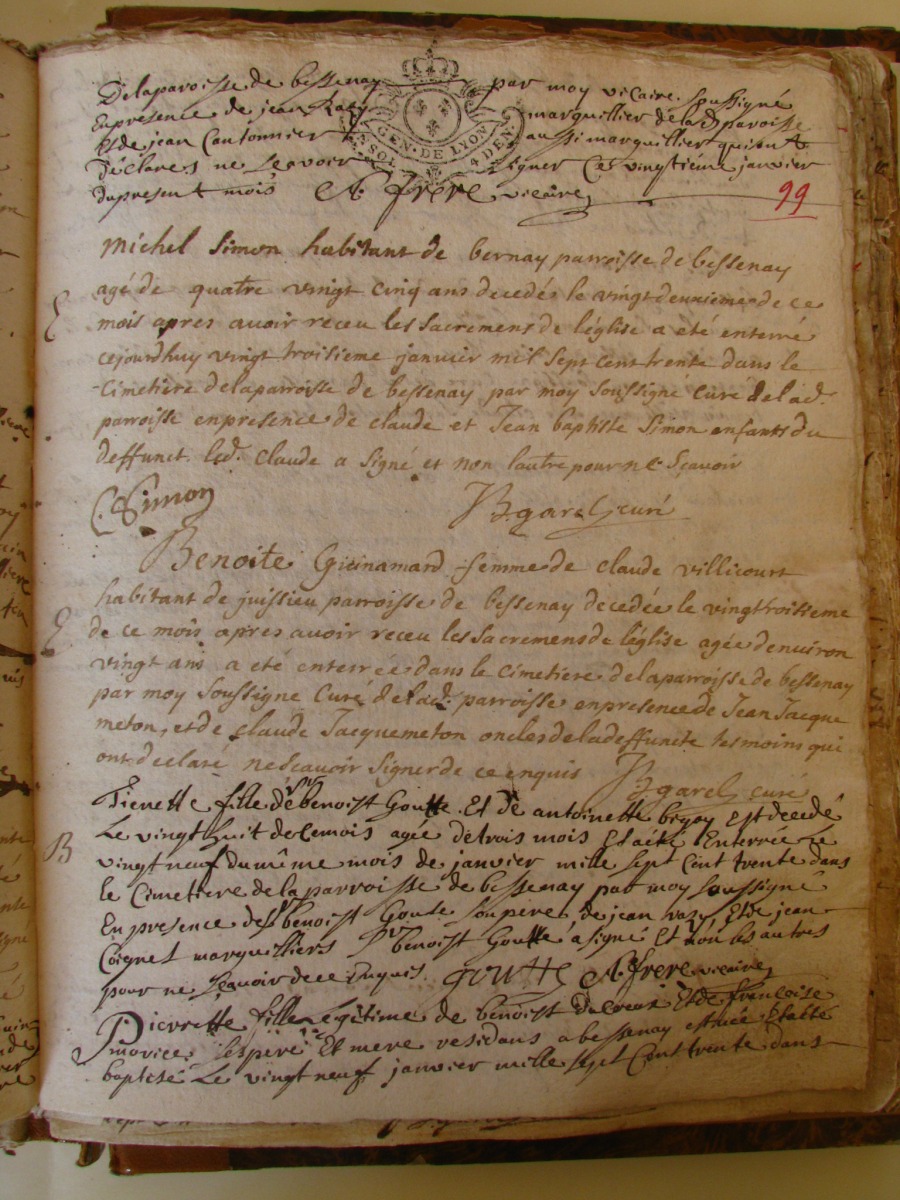 Delaparoisse de bessenay par moy vicaire soussigné
En presence de jean Razy marguillier de lad paroisse
Et de jean Cantonnier aussi marguillier qui ont
Déclarés ne scavoir signer Ce vingtieme janvier
du present mois A. frere vicaire
GEN. DE LYON
4 DEN.
99
Michel Simon habitant de bernay parroisse de bessenay
agé de quatre vingt cinq ans decedé le vingt deuxieme de ce
mois apres avoir receu les Sacremens de léglise a eté enterré
cejourdhuy vingt troisieme janvier mil Sept cent trente dans le
Cimetiere delaparroisse de bessenay par moy Soussigne Curé de lad.
parroisse en presence de claude et Jean baptiste Simon enfants du
deffunct. led. Claude a Signé et non lautre pour ne Scavoir
C. Simon
JB garel curé
Benoite Guinamard femme de claude villicourt
habitant de juissieu parroisse de bessenay decedée le vingtroisieme
de ce mois apres avoir receu les Sacremens de léglise agée denviron
vingt ans a eté enterrée dans le Cimetiere delaparroisse de bessenay
par moy Soussigne Curé de lad. parroisse en presence de Jean Jacque
meton, et de claude Jacquemeton oncles de la deffuncte tesmoins qui
ont declaré ne Scavoir Signer de ce enquis JB garel curé
B
fille de Sr benoist Goutte Et de antoinette est decedé
Le vingt huit de ce mois agée de trois mois Et a été Enterrée Le
vingt neuf du même mois de janvier mille sept Cent trente dans
le Cimetiere de la parroisse de bessenay par moy soussigné
En presence de Sr benoist Goutte son pere de jean razy Et de jean
Coignet marguilliers Sr benoist Goutte a signé Et non les autres
pour ne Scavoir de ce Enquis. Goutte A. frere vicaire
Pierrette fille Légitime de benoist Et de françoise
ses pere Et mere residans a bessenay est née Et a été
baptisé Le vingt neuf janvier mille sept Cent trente dans